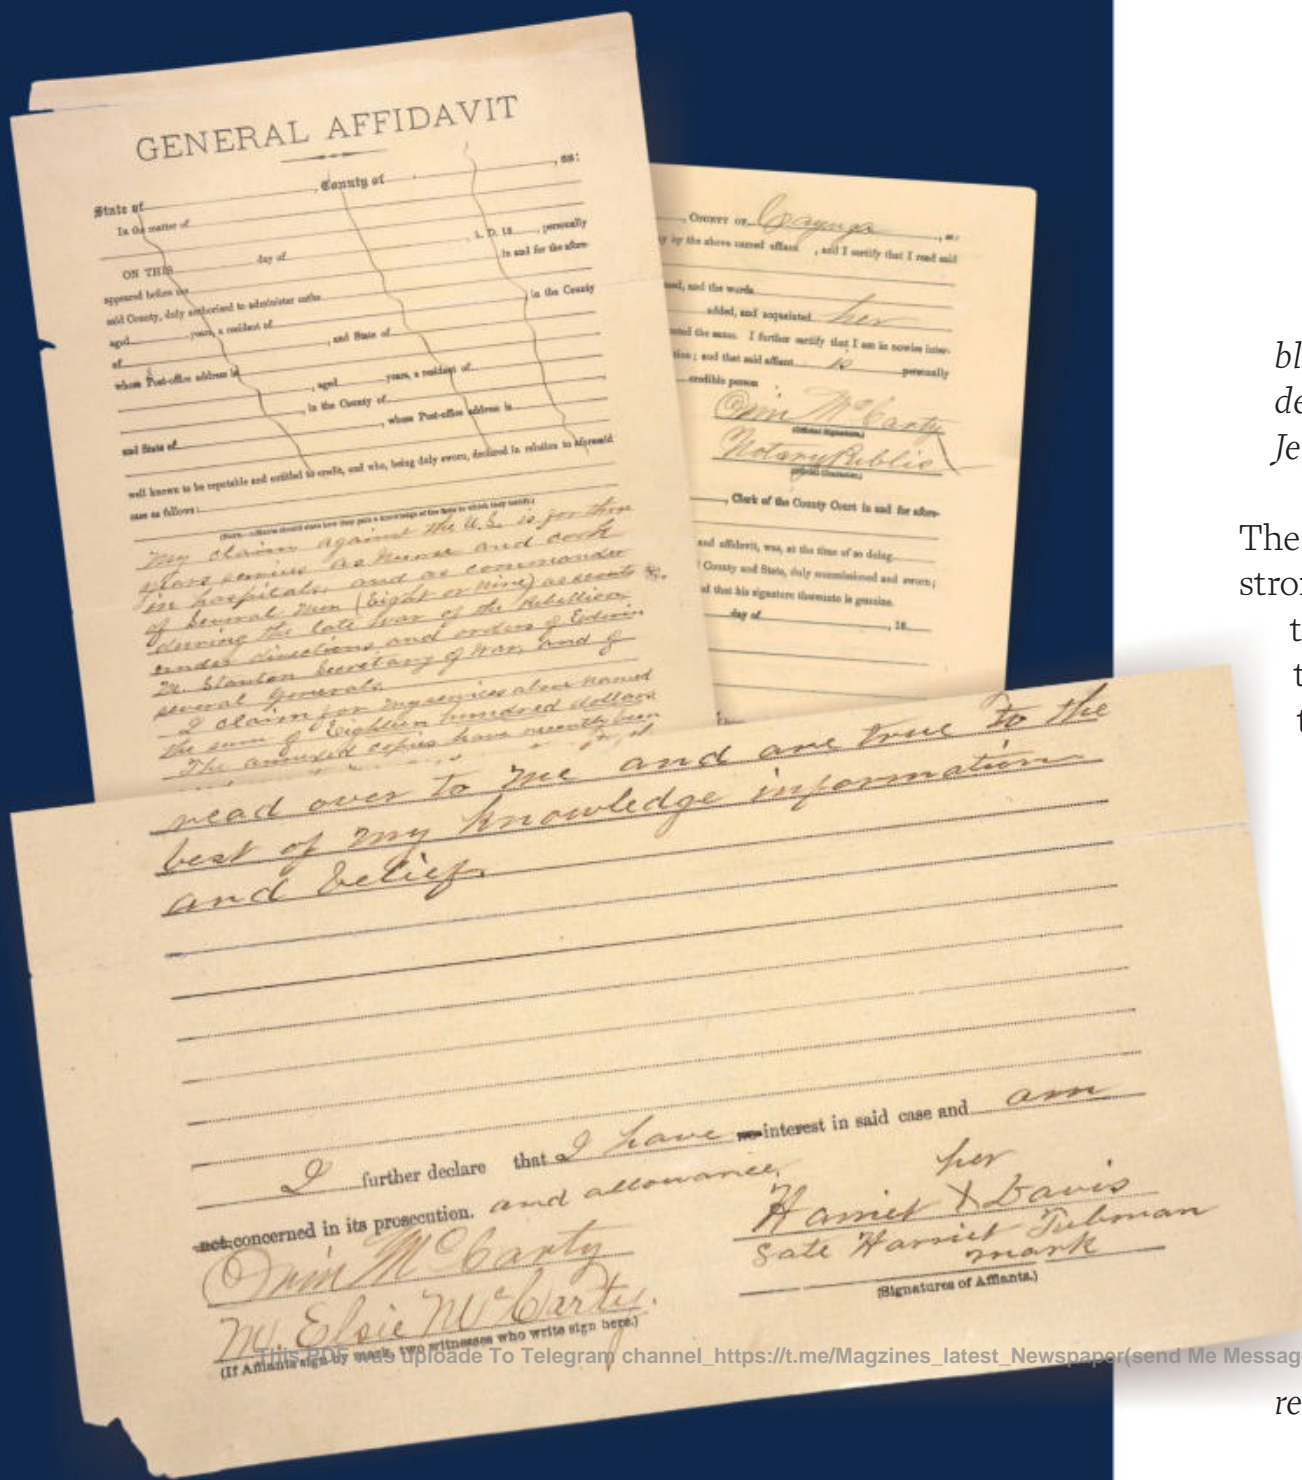 GENERAL AFFIDAVIT
State of , County of , ss:
In the matter of
ON THIS day of , A. D. 18 , personally
appeared before me in and for the afore-
said County, duly authorized to administer oaths
aged years, a resident of in the County
of , and State of
whose Post-office address is
, aged years, a resident of
, in the County of
and State of , whose Post-office address is
well known to be reputable and entitled to credit, and who, being duly sworn, declared in relation to aforesaid
case as follows:
(NOTE.—Affiants should state how they gain a knowledge of the facts to which they testify.)
My claim against the U.S. is for three
years service as nurse and cook
in hospitals, and as commander
of several Men (Eight or Nine) as scouts
during the late war of the Rebellion
under directions and orders of Edwin
M. Stanton Secretary of War, and of
several Generals.
I claim for my services above named
the sum of Eighteen hundred dollars
The annexed copies have recently been
, COUNTY OF Cayuga , ss:
by the above named affiant , and I certify that I read said
, and the words
added, and acquainted her
the same. I further certify that I am in nowise inter-
; and that said affiant is personally
credible person
Orin McCarty
(Official Signature.)
Notary Public
(Official Character.)
, Clerk of the County Court in and for afore-
and affidavit, was, at the time of so doing
County and State, duly commissioned and sworn;
that his signature thereunto is genuine.
day of , 18
read over to me and are true to the
best of my knowledge information
and belief.
I further declare that I have no interest in said case and am
not concerned in its prosecution. and allowance.
her
Harriet X Davis
late Harriet Tubman
mark
(Signatures of Affiants.)
Orin McCarty
W. Elsie McCarty.
(If Affiants sign by mark, two witnesses who write sign here.)
This PDF was uploade To Telegram channel_https://t.me/Magzines_latest_Newspaper(send Me Messag
bl
de
Je
The
stron
t
t
t
re